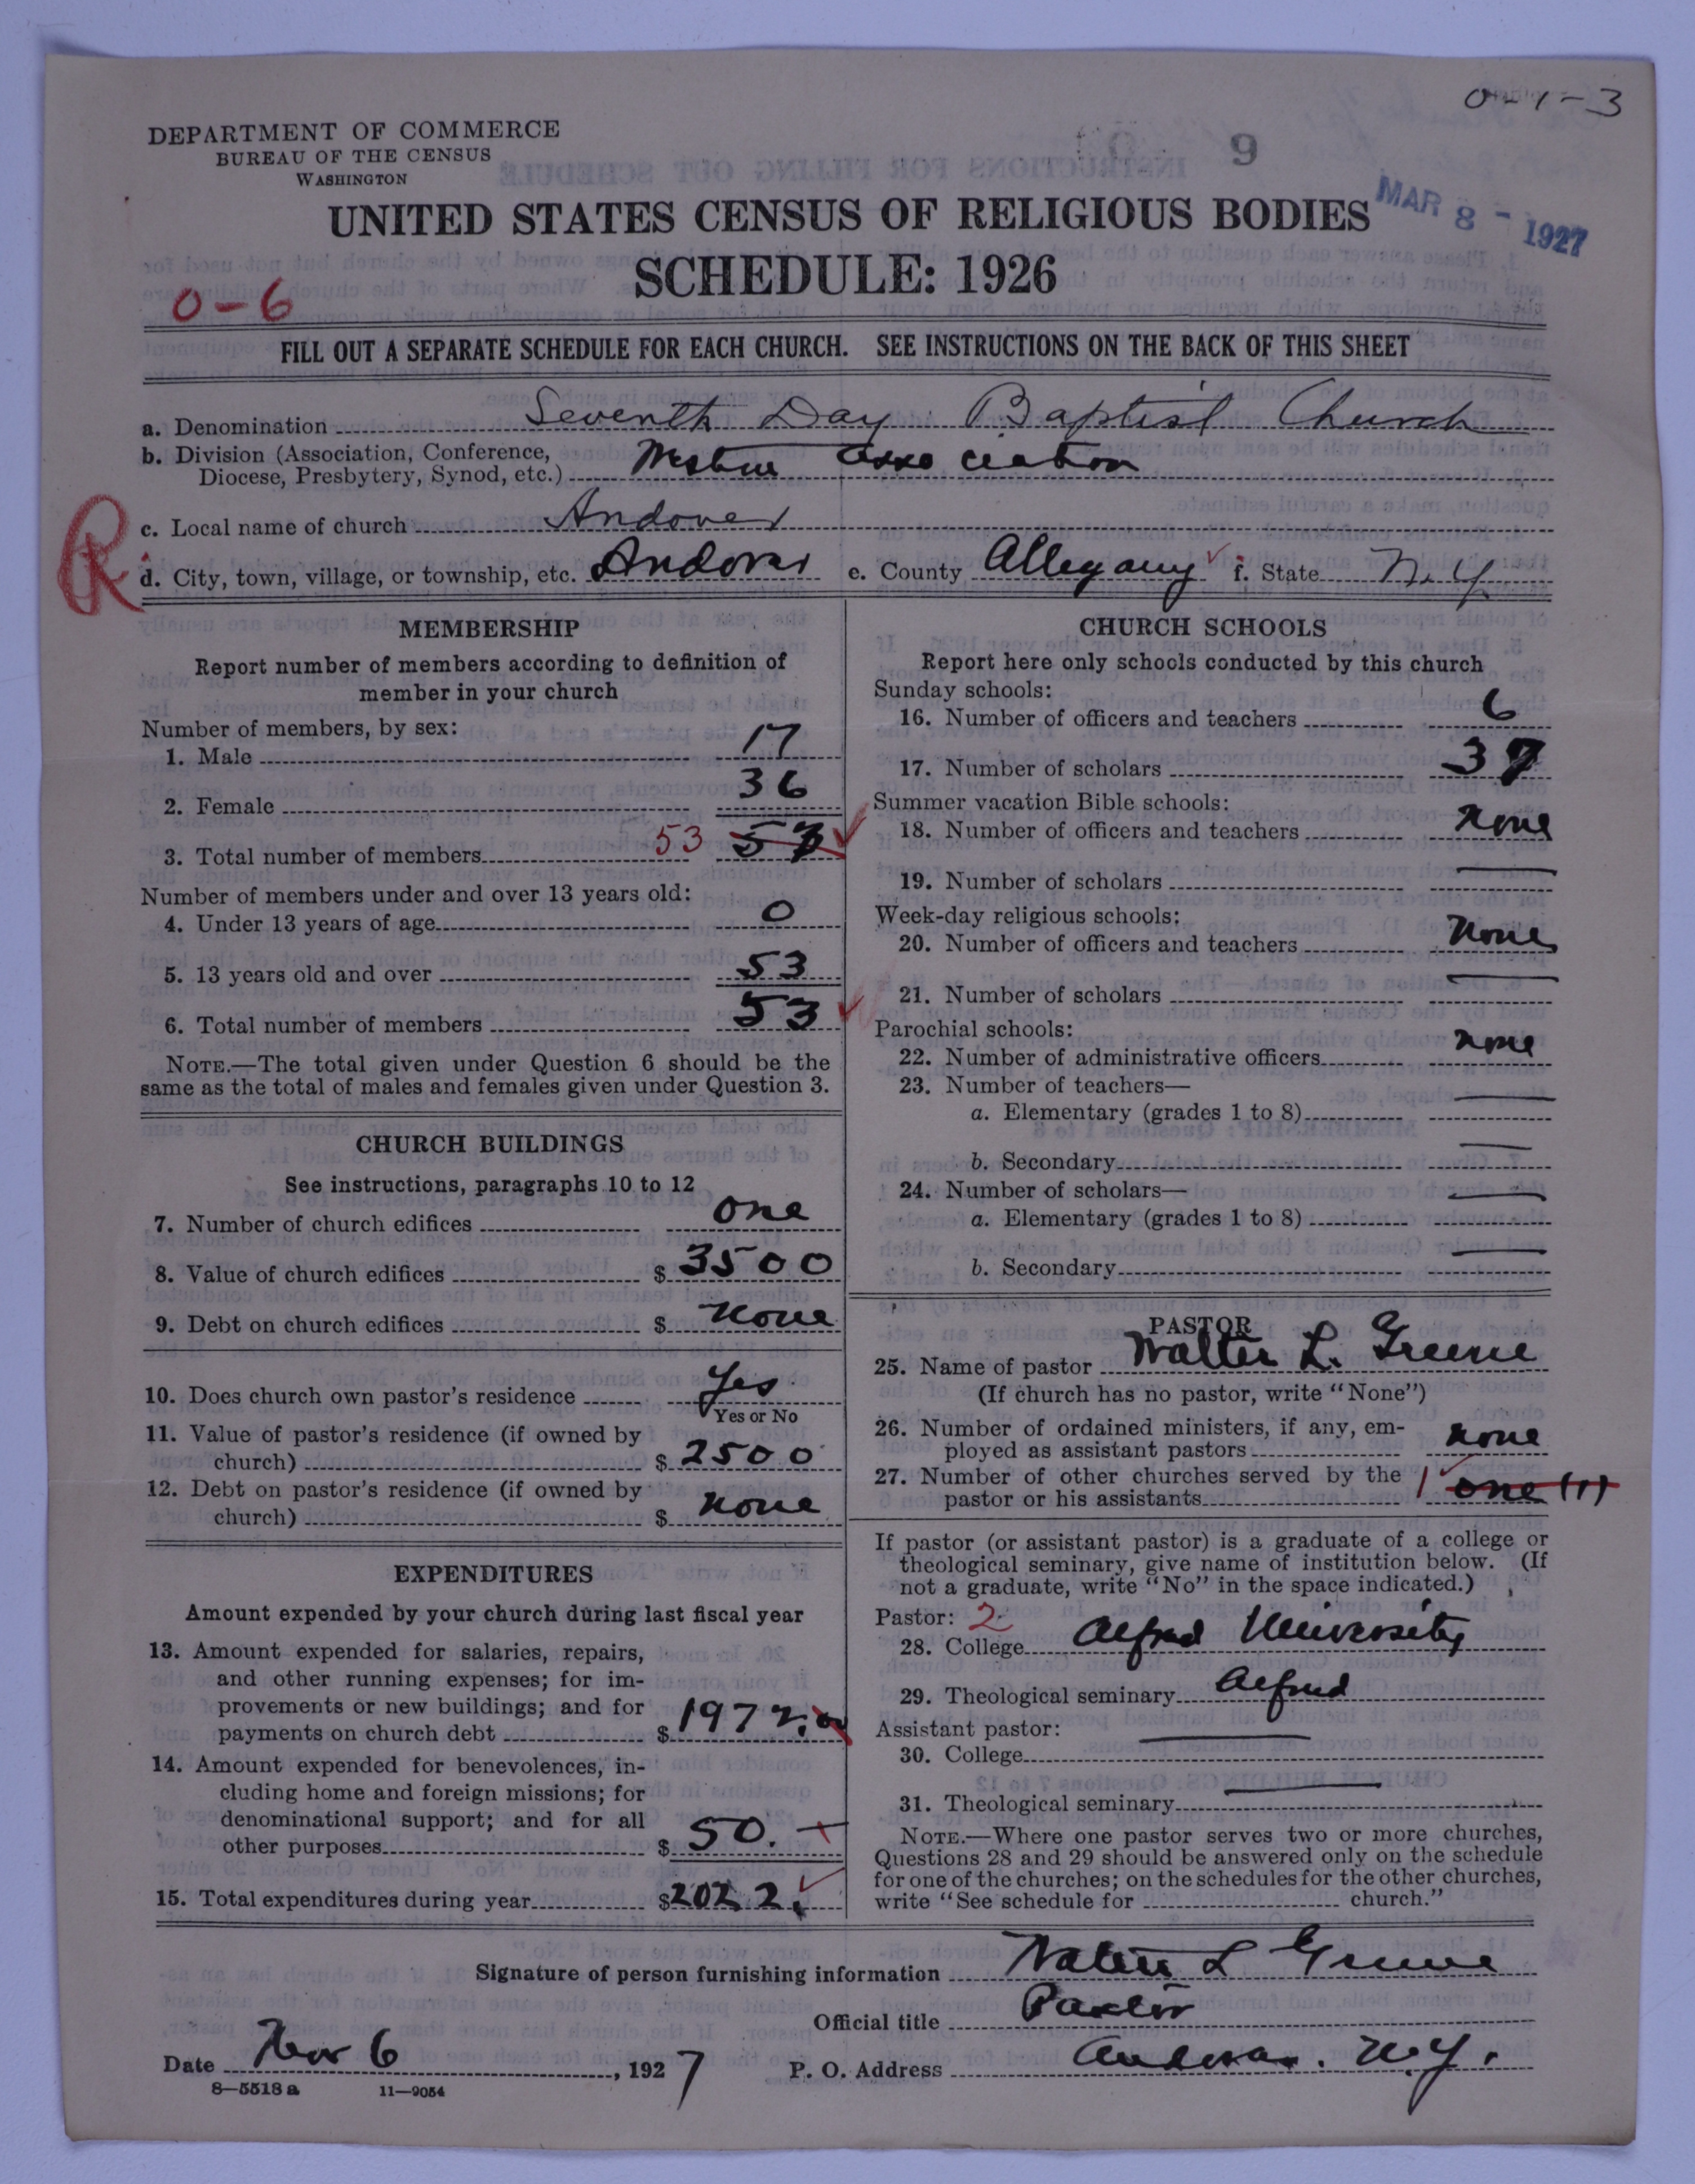 0-1-3
DEPARTMENT OF COMMERCE
BUREAU OF THE CENSUS
WASHINGTON
9
MAR 8 - 1927
UNITED STATES CENSUS OF RELIGIOUS BODIES
SCHEDULE: 1926
0-6
FILL OUT A SEPARATE SCHEDULE FOR EACH CHURCH. SEE INSTRUCTIONS ON THE BACK OF THIS SHEET
a. Denomination Seventh Day Baptist Church
b. Division (Association, Conference, Diocese, Presbytery, Synod, etc.) Western Association
R
c. Local name of church Andover
d. City, town, village, or township, etc. Andover e. County Allegany f. State N.Y.
MEMBERSHIP
Report number of members according to definition of
member in your church
Number of members, by sex:
1. Male 17
2. Female 36
3. Total number of members 53 57
Number of members under and over 13 years old:
4. Under 13 years of age 0
5. 13 years old and over 53
6. Total number of members 53
NOTE.—The total given under Question 6 should be the
same as the total of males and females given under Question 3.
CHURCH BUILDINGS
See instructions, paragraphs 10 to 12
7. Number of church edifices one
8. Value of church edifices $ 3500
9. Debt on church edifices $ none
10. Does church own pastor's residence Yes
Yes or No
11. Value of pastor's residence (if owned by
church) $ 2500
12. Debt on pastor's residence (if owned by
church) $ none
EXPENDITURES
Amount expended by your church during last fiscal year
13. Amount expended for salaries, repairs,
and other running expenses; for im-
provements or new buildings; and for
payments on church debt $ 1972.00
14. Amount expended for benevolences, in-
cluding home and foreign missions; for
denominational support; and for all
other purposes $ 50. —
15. Total expenditures during year $2022.
CHURCH SCHOOLS
Report here only schools conducted by this church
Sunday schools:
16. Number of officers and teachers 6
17. Number of scholars 37
Summer vacation Bible schools:
18. Number of officers and teachers none
19. Number of scholars —
Week-day religious schools:
20. Number of officers and teachers none
21. Number of scholars —
Parochial schools:
22. Number of administrative officers none
23. Number of teachers—
a. Elementary (grades 1 to 8) —
b. Secondary —
24. Number of scholars—
a. Elementary (grades 1 to 8) —
b. Secondary —
PASTOR
25. Name of pastor Walter L. Greene
(If church has no pastor, write "None")
26. Number of ordained ministers, if any, em-
ployed as assistant pastors none
27. Number of other churches served by the
pastor or his assistants 1 one (1)
If pastor (or assistant pastor) is a graduate of a college or
theological seminary, give name of institution below. (If
not a graduate, write "No" in the space indicated.)
Pastor: 2
28. College Alfred University
29. Theological seminary Alfred
Assistant pastor:
30. College —
31. Theological seminary —
NOTE.—Where one pastor serves two or more churches,
Questions 28 and 29 should be answered only on the schedule
for one of the churches; on the schedules for the other churches,
write "See schedule for ........ church."
Signature of person furnishing information Walter L Greene
Official title Pastor
Date Mar 6, 1927 P. O. Address Andover. N.Y.
8—5518 a 11—9054